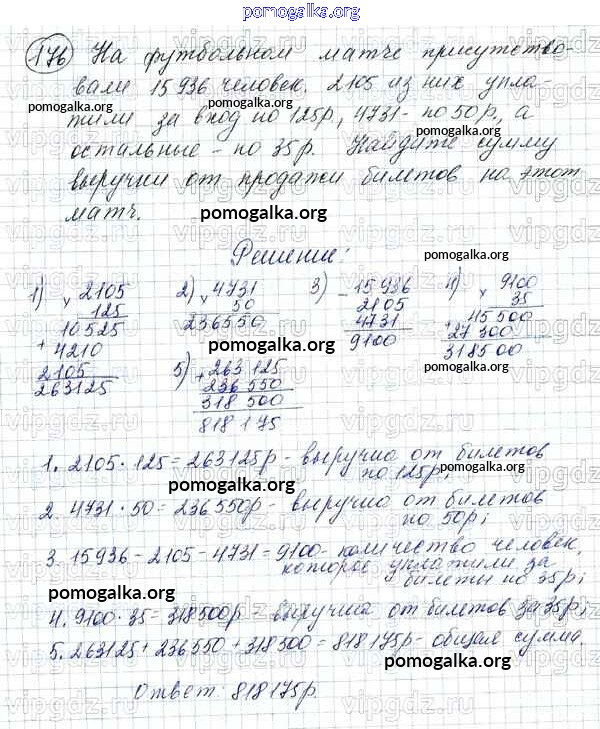 pomogalka.org
176 На футбольном матче присутство-
вали 15936 человек. 2105 из них упла-
pomogalka.org pomogalka.org pomogalka.org
тили за вход по 125р, 4731 - по 50р, а
остальные - по 35р. Найдите сумму
выручки от продажи билетов на этот
матч. pomogalka.org
Решение: pomogalka.org
1) × 2105 2) × 4731 3) - 15936 4) × 9100
125 50 2105 35
10525 236550 4731 + 45500
+ 4210 pomogalka.org 9100 27300
2105 5) + 263125 318500
263125 236550 pomogalka.org
318500
818175
1. 2105 · 125 = 263125р - выручка от билетов
по 125р; pomogalka.org
pomogalka.org
2. 4731 · 50 = 236550р - выручка от билетов
pomogalka.org по 50р;
3. 15936 - 2105 - 4731 = 9100 - количество человек,
которое уплатили за
pomogalka.org билеты по 35р;
4. 9100 · 35 = 318500р выручка от билетов за 35р;
5. 263125 + 236550 + 318500 = 818175р - общая сумма.
pomogalka.org
Ответ 818175р.
vipgdz.ru